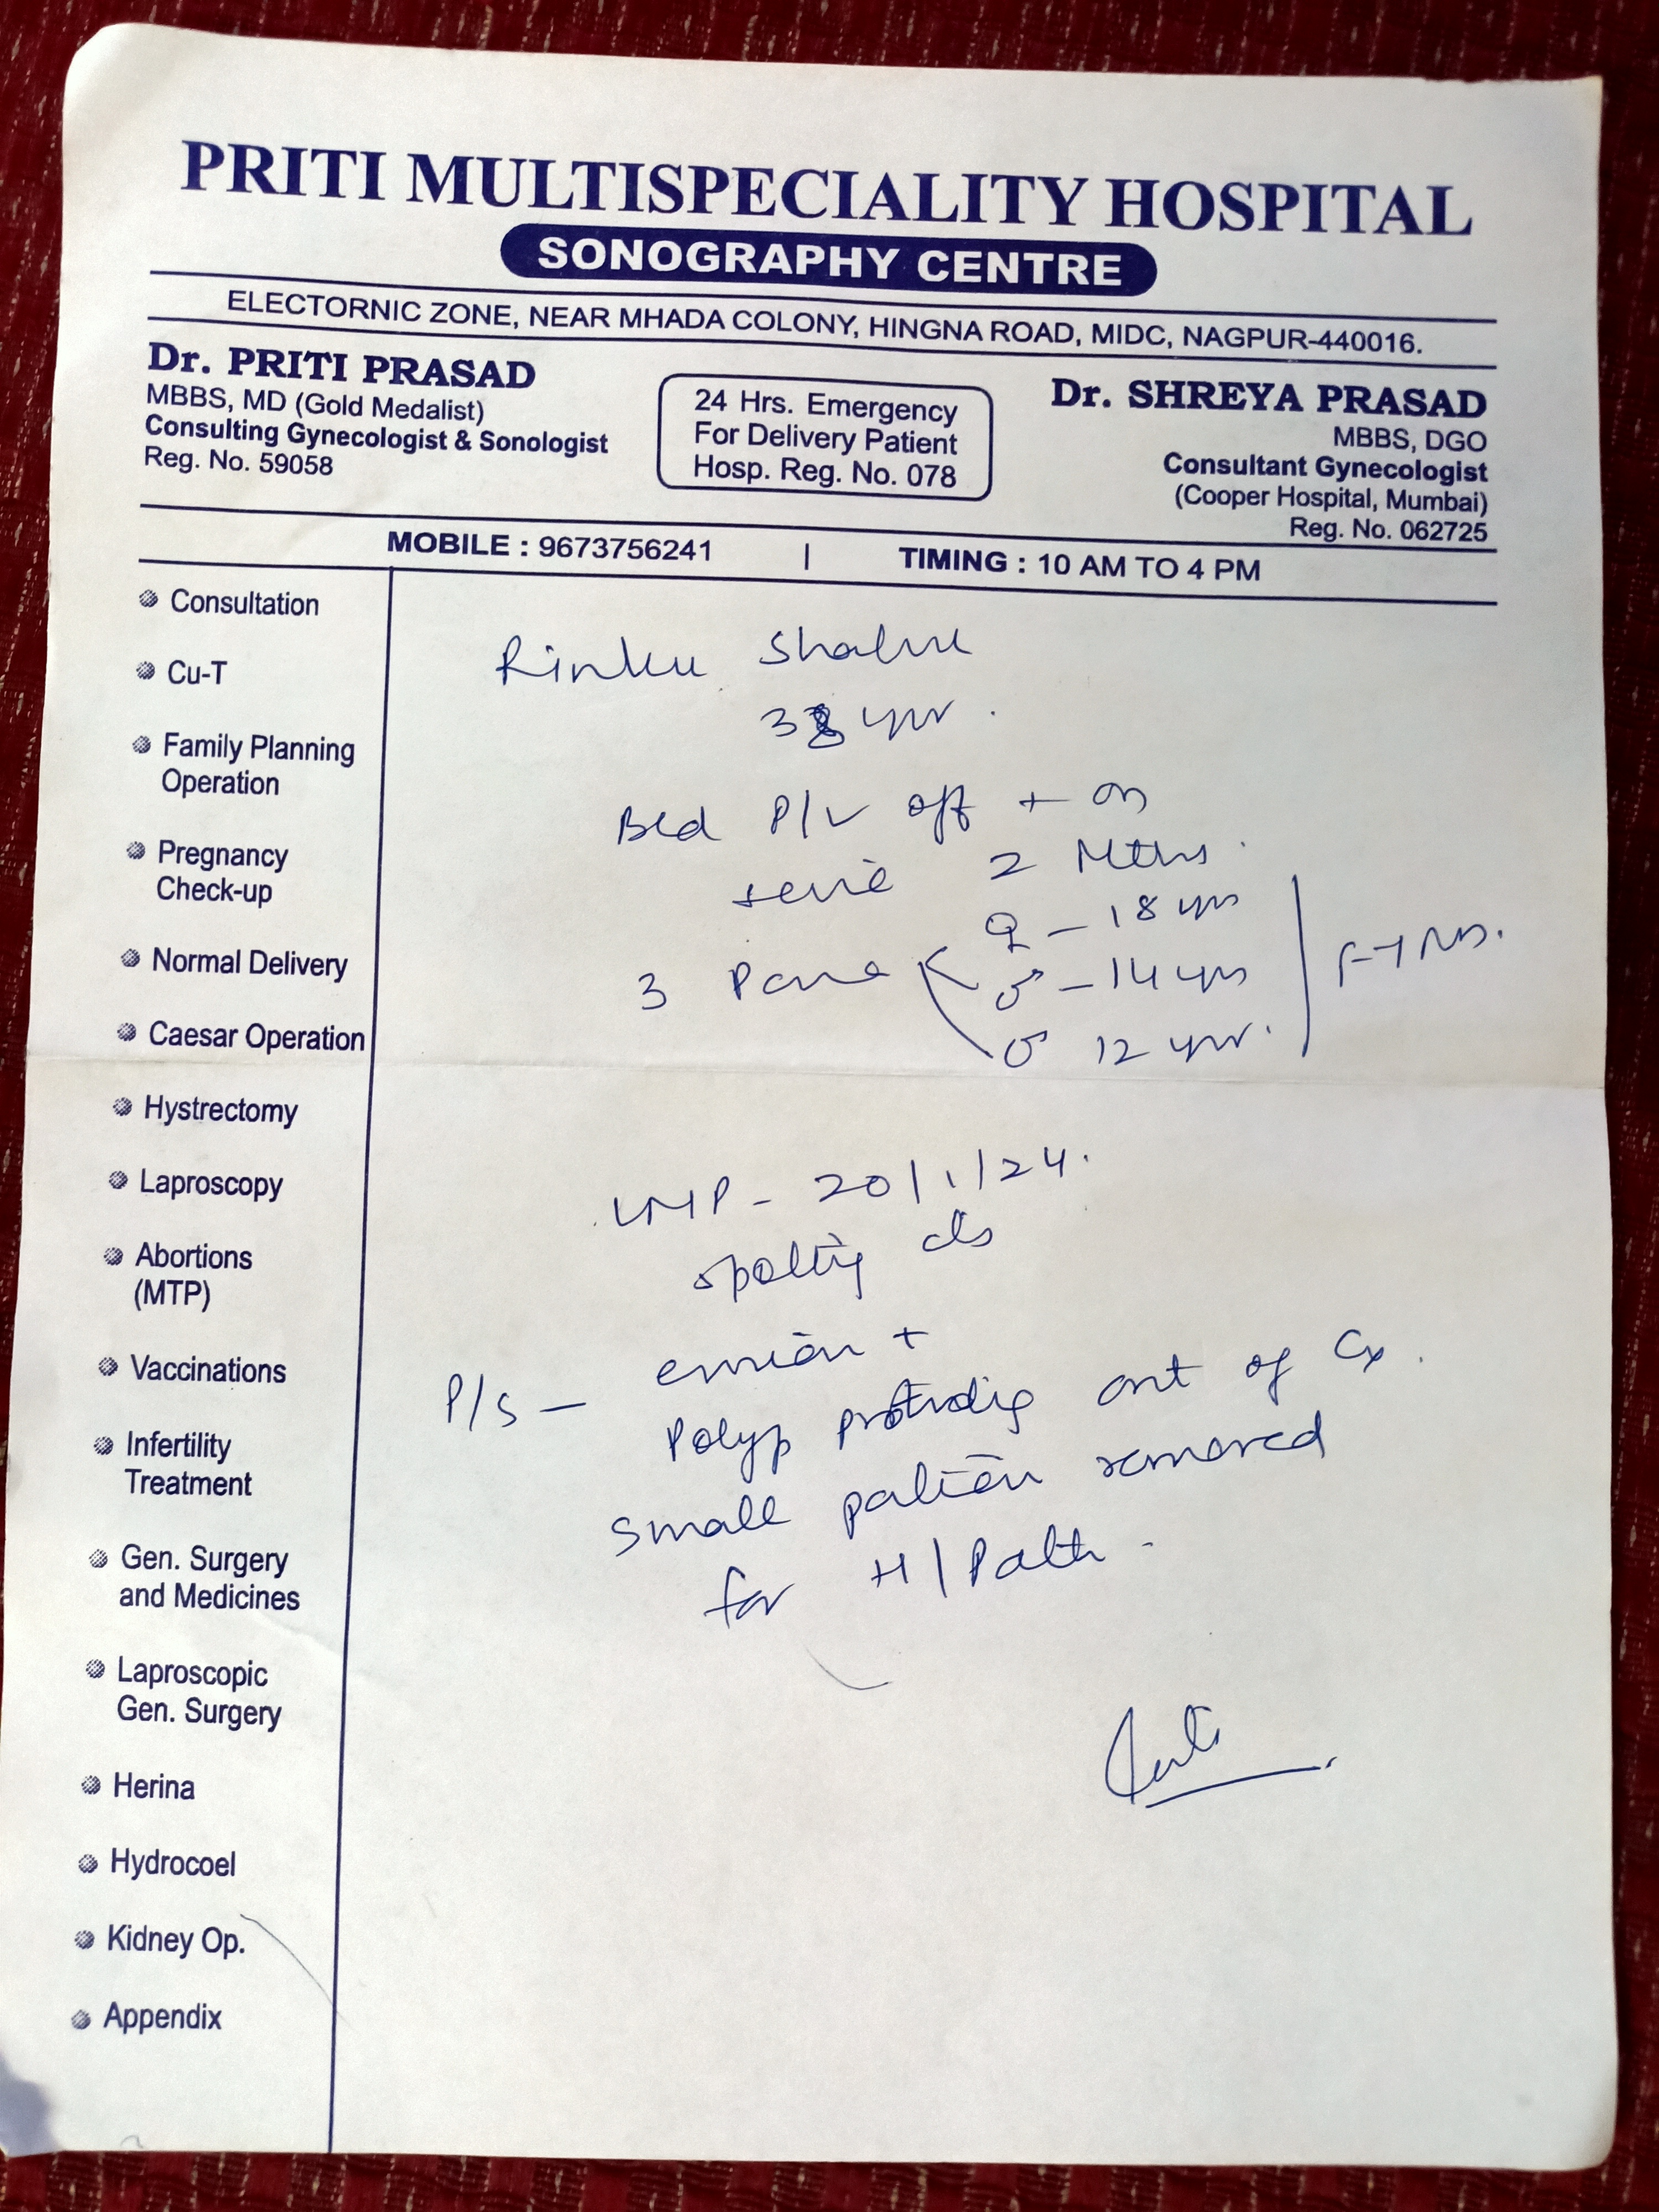 PRITI MULTISPECIALITY HOSPITAL
SONOGRAPHY CENTRE
ELECTORNIC ZONE, NEAR MHADA COLONY, HINGNA ROAD, MIDC, NAGPUR-440016.
Dr. PRITI PRASAD
MBBS, MD (Gold Medalist)
Consulting Gynecologist & Sonologist
Reg. No. 59058
24 Hrs. Emergency
For Delivery Patient
Hosp. Reg. No. 078
Dr. SHREYA PRASAD
MBBS, DGO
Consultant Gynecologist
(Cooper Hospital, Mumbai)
Reg. No. 062725
MOBILE : 9673756241 | TIMING : 10 AM TO 4 PM
Consultation
Cu-T
Family Planning
Operation
Pregnancy
Check-up
Normal Delivery
Caesar Operation
Hystrectomy
Laproscopy
Abortions
(MTP)
Vaccinations
Infertility
Treatment
Gen. Surgery
and Medicines
Laproscopic
Gen. Surgery
Herina
Hydrocoel
Kidney Op.
Appendix
Rinku
38 yrs.
Bld P/V off + on
since 2 Mths.
♀ - 18 yrs
3 Para ♂ - 14 yrs FTND.
♂ 12 yrs.
LMP - 20/1/24.
spotting
P/S - erosion +
Polyp protruding out of Cx.
Small portion removed
for H/Path.